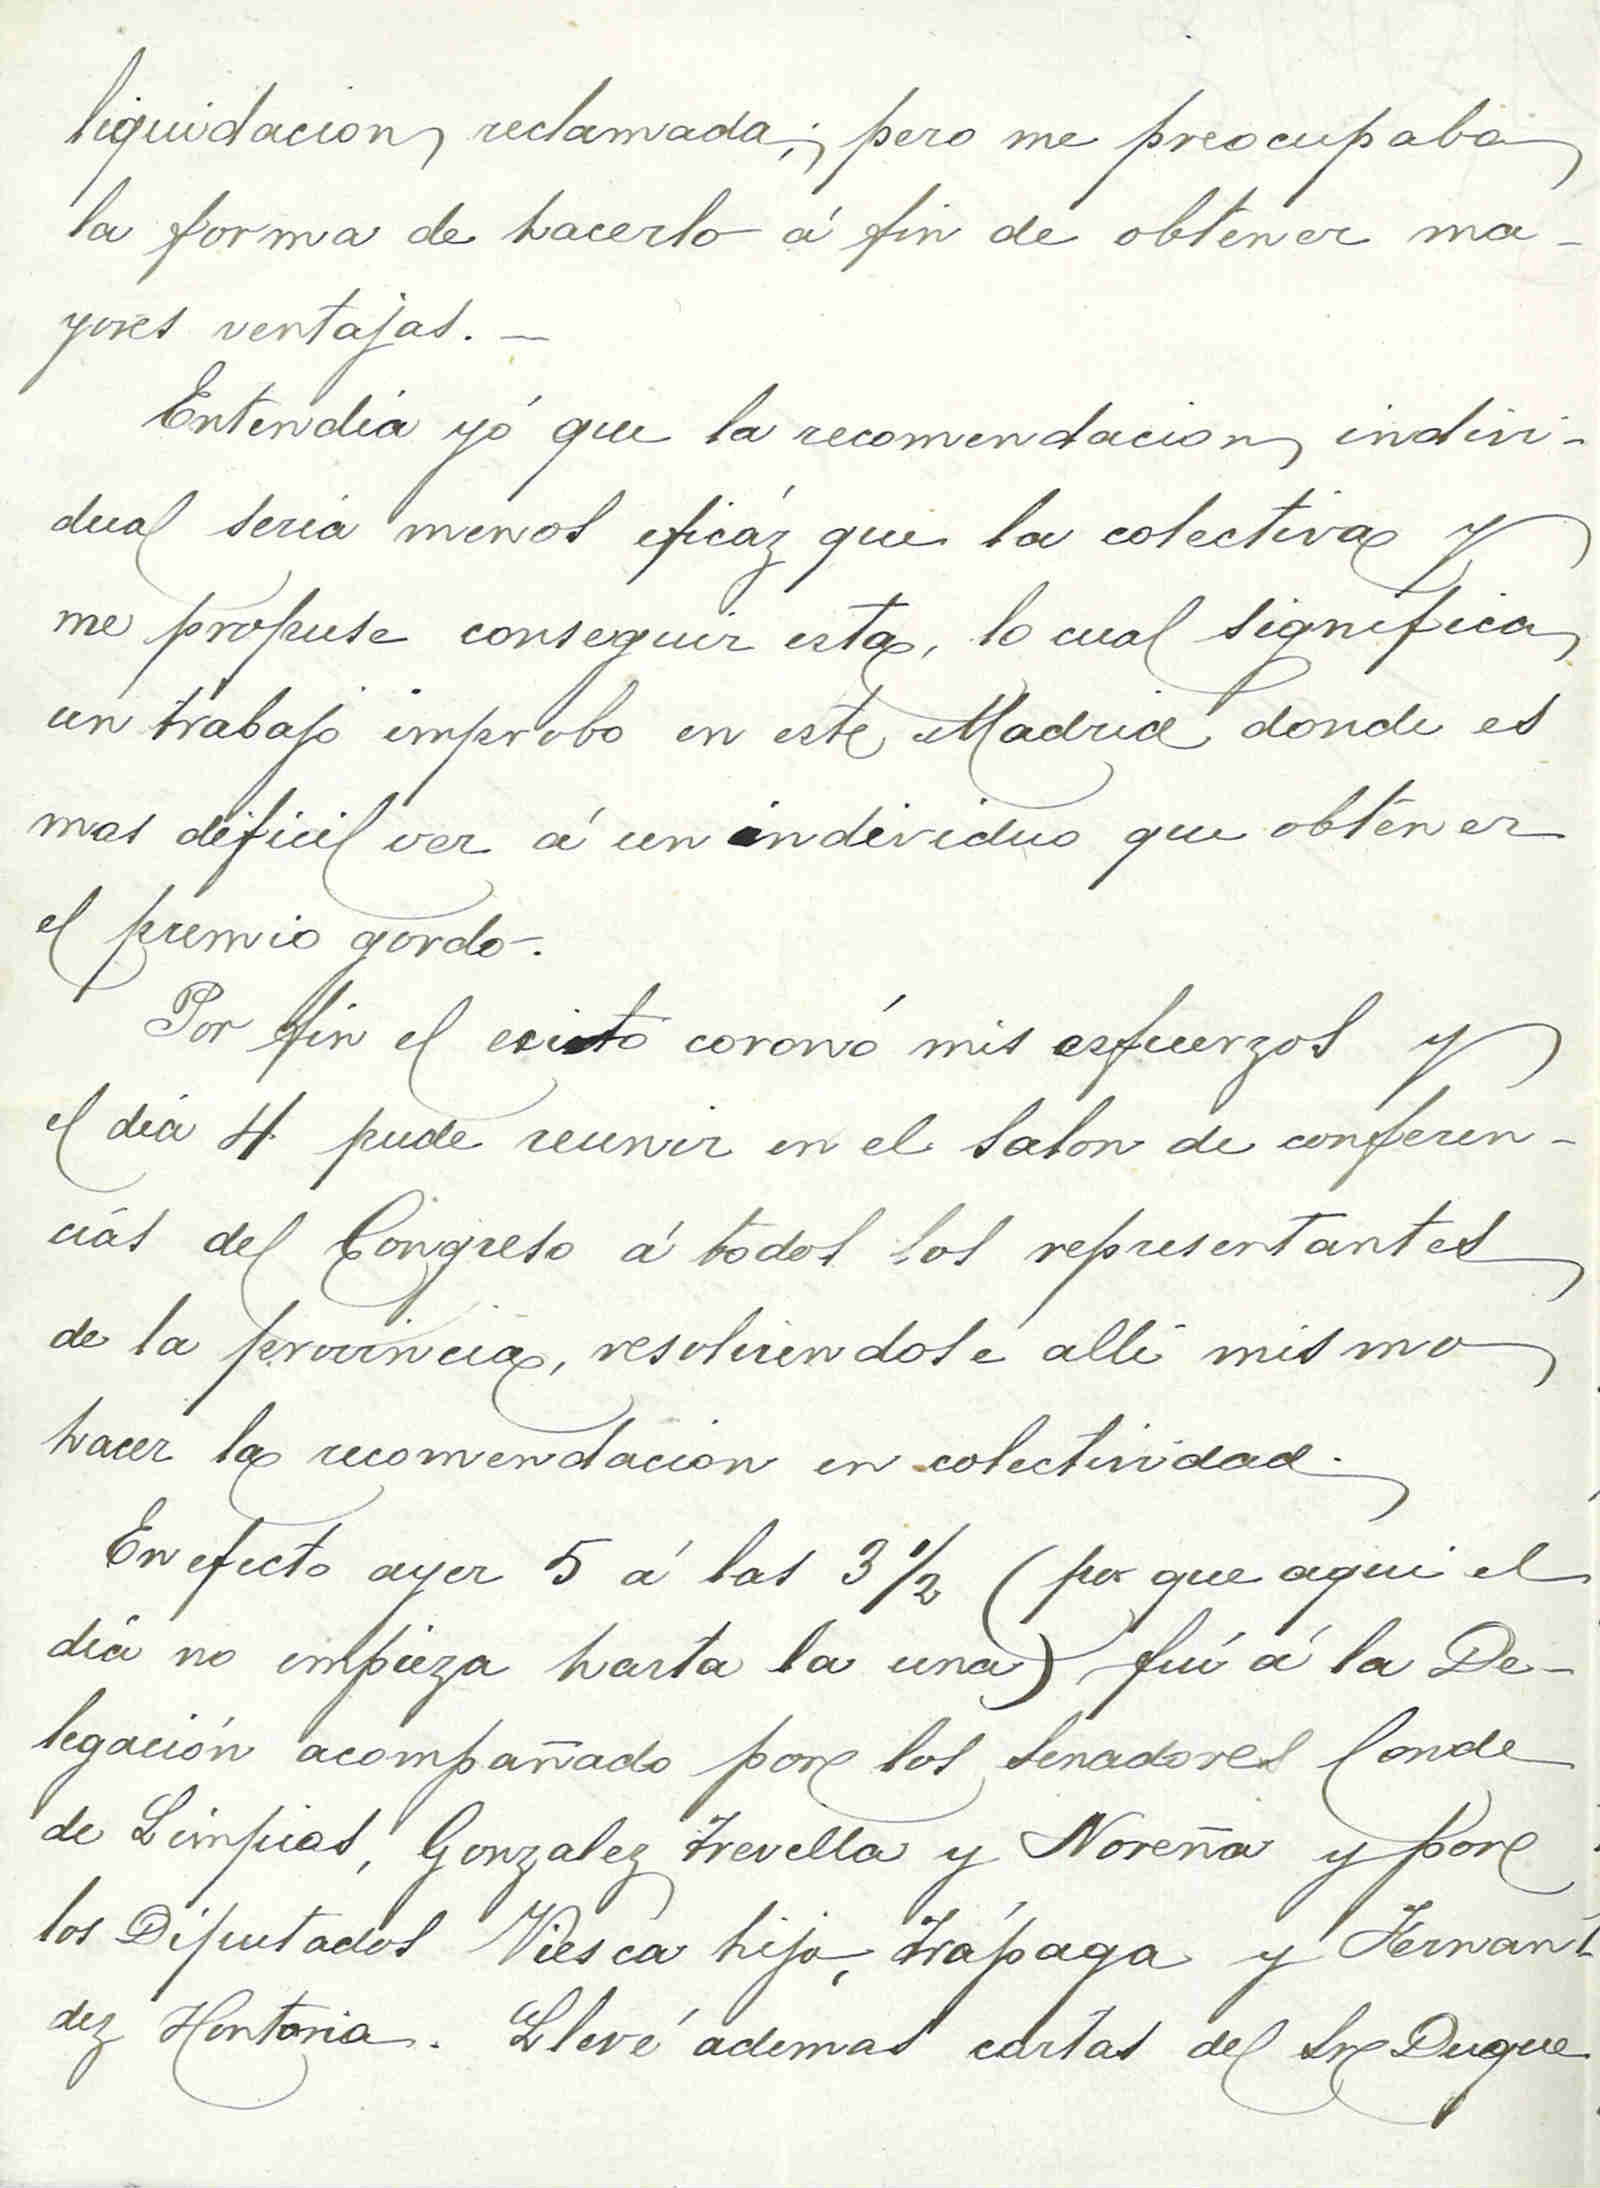 liquidacion reclamada; pero me preocupaba
la forma de hacerlo á fin de obtener ma-
yores ventajas. —
Entendia yó que la recomendacion indivi-
dual seria menos eficáz que la colectiva y
me propuse conseguir esta, lo cual significa
un trabajo improbo en este Madrid donde es
mas dificil ver á un individuo que obtener
el premio gordo-.
Por fin el exito coronó mis esfuerzos y
el dia 4 pude reunir en el salon de conferen-
cias del Congreso á todos los representantes
de la provincia, resolviendose alli mismo
hacer la recomendacion en colectividad.
En efecto ayer 5 á las 3 1/2 (por que aqui el
dia no empieza hasta la una) fuí á la De-
legación acompañado por los Senadores Conde
de Limpias, Gonzalez Trevilla y Noreña y por
los Diputados Viesca hijo, Trápaga y Hernan-
dez Hontoria. Llevé ademas cartas del Sr Duque